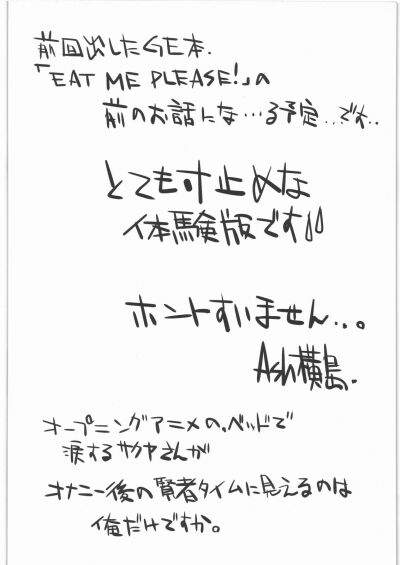 前回出したGE本.
「EAT ME PLEASE!」の
前のお話にな…る予定…でわ..
とても寸止めな
体験版です!!
ホントすいません...。
Ash横島.
オープニングアニメの、ベッドで
涙するサクヤさんが
オナニー後の賢者タイムに見えるのは
俺だけですか。